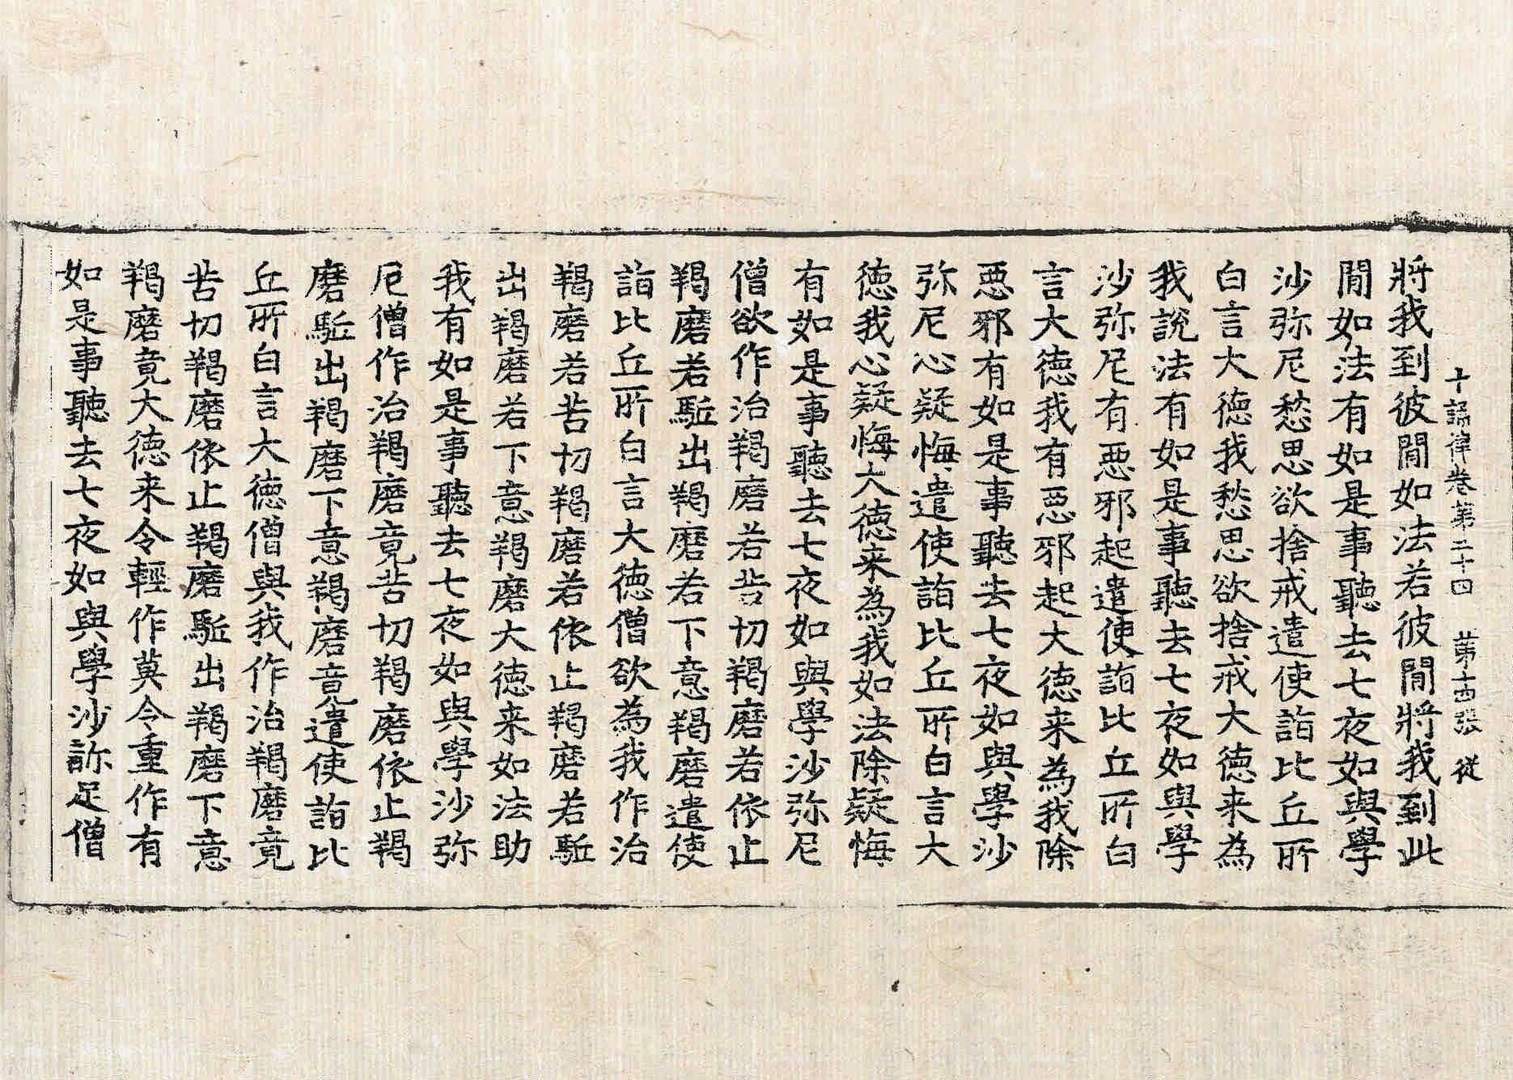 十誦律卷第二十四　第十四張　從
將我到彼閒如法若彼閒將我到此
閒如法有如是事聽去七夜如與學
沙弥尼愁思欲捨戒遣使詣比丘所
白言大德我愁思欲捨戒大德来為
我說法有如是事聽去七夜如與學
沙弥尼有惡邪起遣使詣比丘所白
言大德我有惡邪起大德来為我除
惡邪有如是事聽去七夜如與學沙
弥尼心疑悔遣使詣比丘所白言大
德我心疑悔大德来為我如法除疑悔
有如是事聽去七夜如與學沙弥尼
僧欲作治羯磨若苦切羯磨若依止
羯磨若駈出羯磨若下意羯磨遣使
詣比丘所白言大德僧欲為我作治
羯磨若苦切羯磨若依止羯磨若駈
出羯磨若下意羯磨大德来如法助
我有如是事聽去七夜如與學沙弥
尼僧作治羯磨竟苦切羯磨依止羯
磨駈出羯磨下意羯磨竟遣使詣比
丘所白言大德僧與我作治羯磨竟
苦切羯磨依止羯磨駈出羯磨下意
羯磨竟大德来令輕作莫令重作有
如是事聽去七夜如與學沙弥尼僧